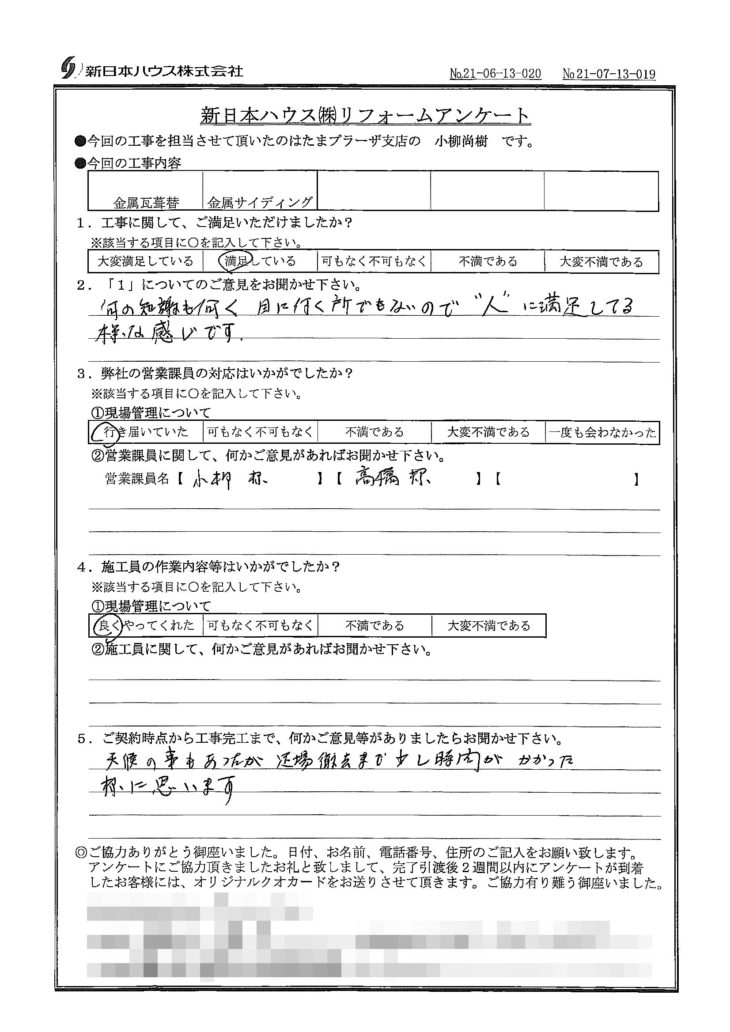 新日本ハウス株式会社
No.21-06-13-020 No21-07-13-019
新日本ハウス㈱リフォームアンケート
●今回の工事を担当させて頂いたのはたまプラーザ支店の 小柳尚樹 です。
●今回の工事内容
金属瓦葺替 金属サイディング
1．工事に関して、ご満足いただけましたか？
※該当する項目に○を記入して下さい。
大変満足している 満足している 可もなく不可もなく 不満である 大変不満である
2．「1」についてのご意見をお聞かせ下さい。
何の知識も何く 目に付く所でもないので "人" に満足してる
様な感じです.
3．弊社の営業課員の対応はいかがでしたか？
※該当する項目に○を記入して下さい。
①現場管理について
行き届いていた 可もなく不可もなく 不満である 大変不満である 一度も会わなかった
②営業課員に関して、何かご意見があればお聞かせ下さい。
営業課員名【 小柳 様 】【 高橋 様 】【 】
4．施工員の作業内容等はいかがでしたか？
※該当する項目に○を記入して下さい。
①現場管理について
良くやってくれた 可もなく不可もなく 不満である 大変不満である
②施工員に関して、何かご意見があればお聞かせ下さい。
5．ご契約時点から工事完工まで、何かご意見等がありましたらお聞かせ下さい。
天候の事もあったが 足場撤去まで少し時間が かかった
様に思います
◎ご協力ありがとう御座いました。日付、お名前、電話番号、住所のご記入をお願い致します。
アンケートにご協力頂きましたお礼と致しまして、完了引渡後２週間以内にアンケートが到着
したお客様には、オリジナルクオカードをお送りさせて頂きます。ご協力有り難う御座いました。